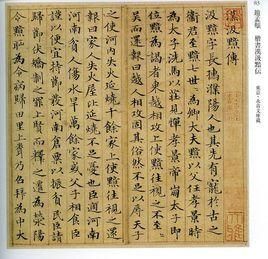 63 趙孟頫 楷書漢汲黯伝
東京・永青文庫藏
漢汲黯傳
汲黯字長孺濮陽人也其先有寵於古之
衛君至黯七世世為卿大夫黯以父任孝景時
為太子洗馬以莊見憚孝景帝崩太子即
位黯為謁者東越相攻上使黯往視之不至
吳而還報曰越人相攻固其俗然不足以辱天子
之使河內失火延燒千餘家上使黯往視之還
報曰家人失火屋比延燒不足憂也臣過河南
河南貧人傷水旱萬餘家或父子相食臣謹
以便宜持節發河南倉粟以振貧民臣請
歸節伏矯制之罪上賢而釋之遷為滎陽
令黯恥為令病歸田里上聞乃召拜為中大